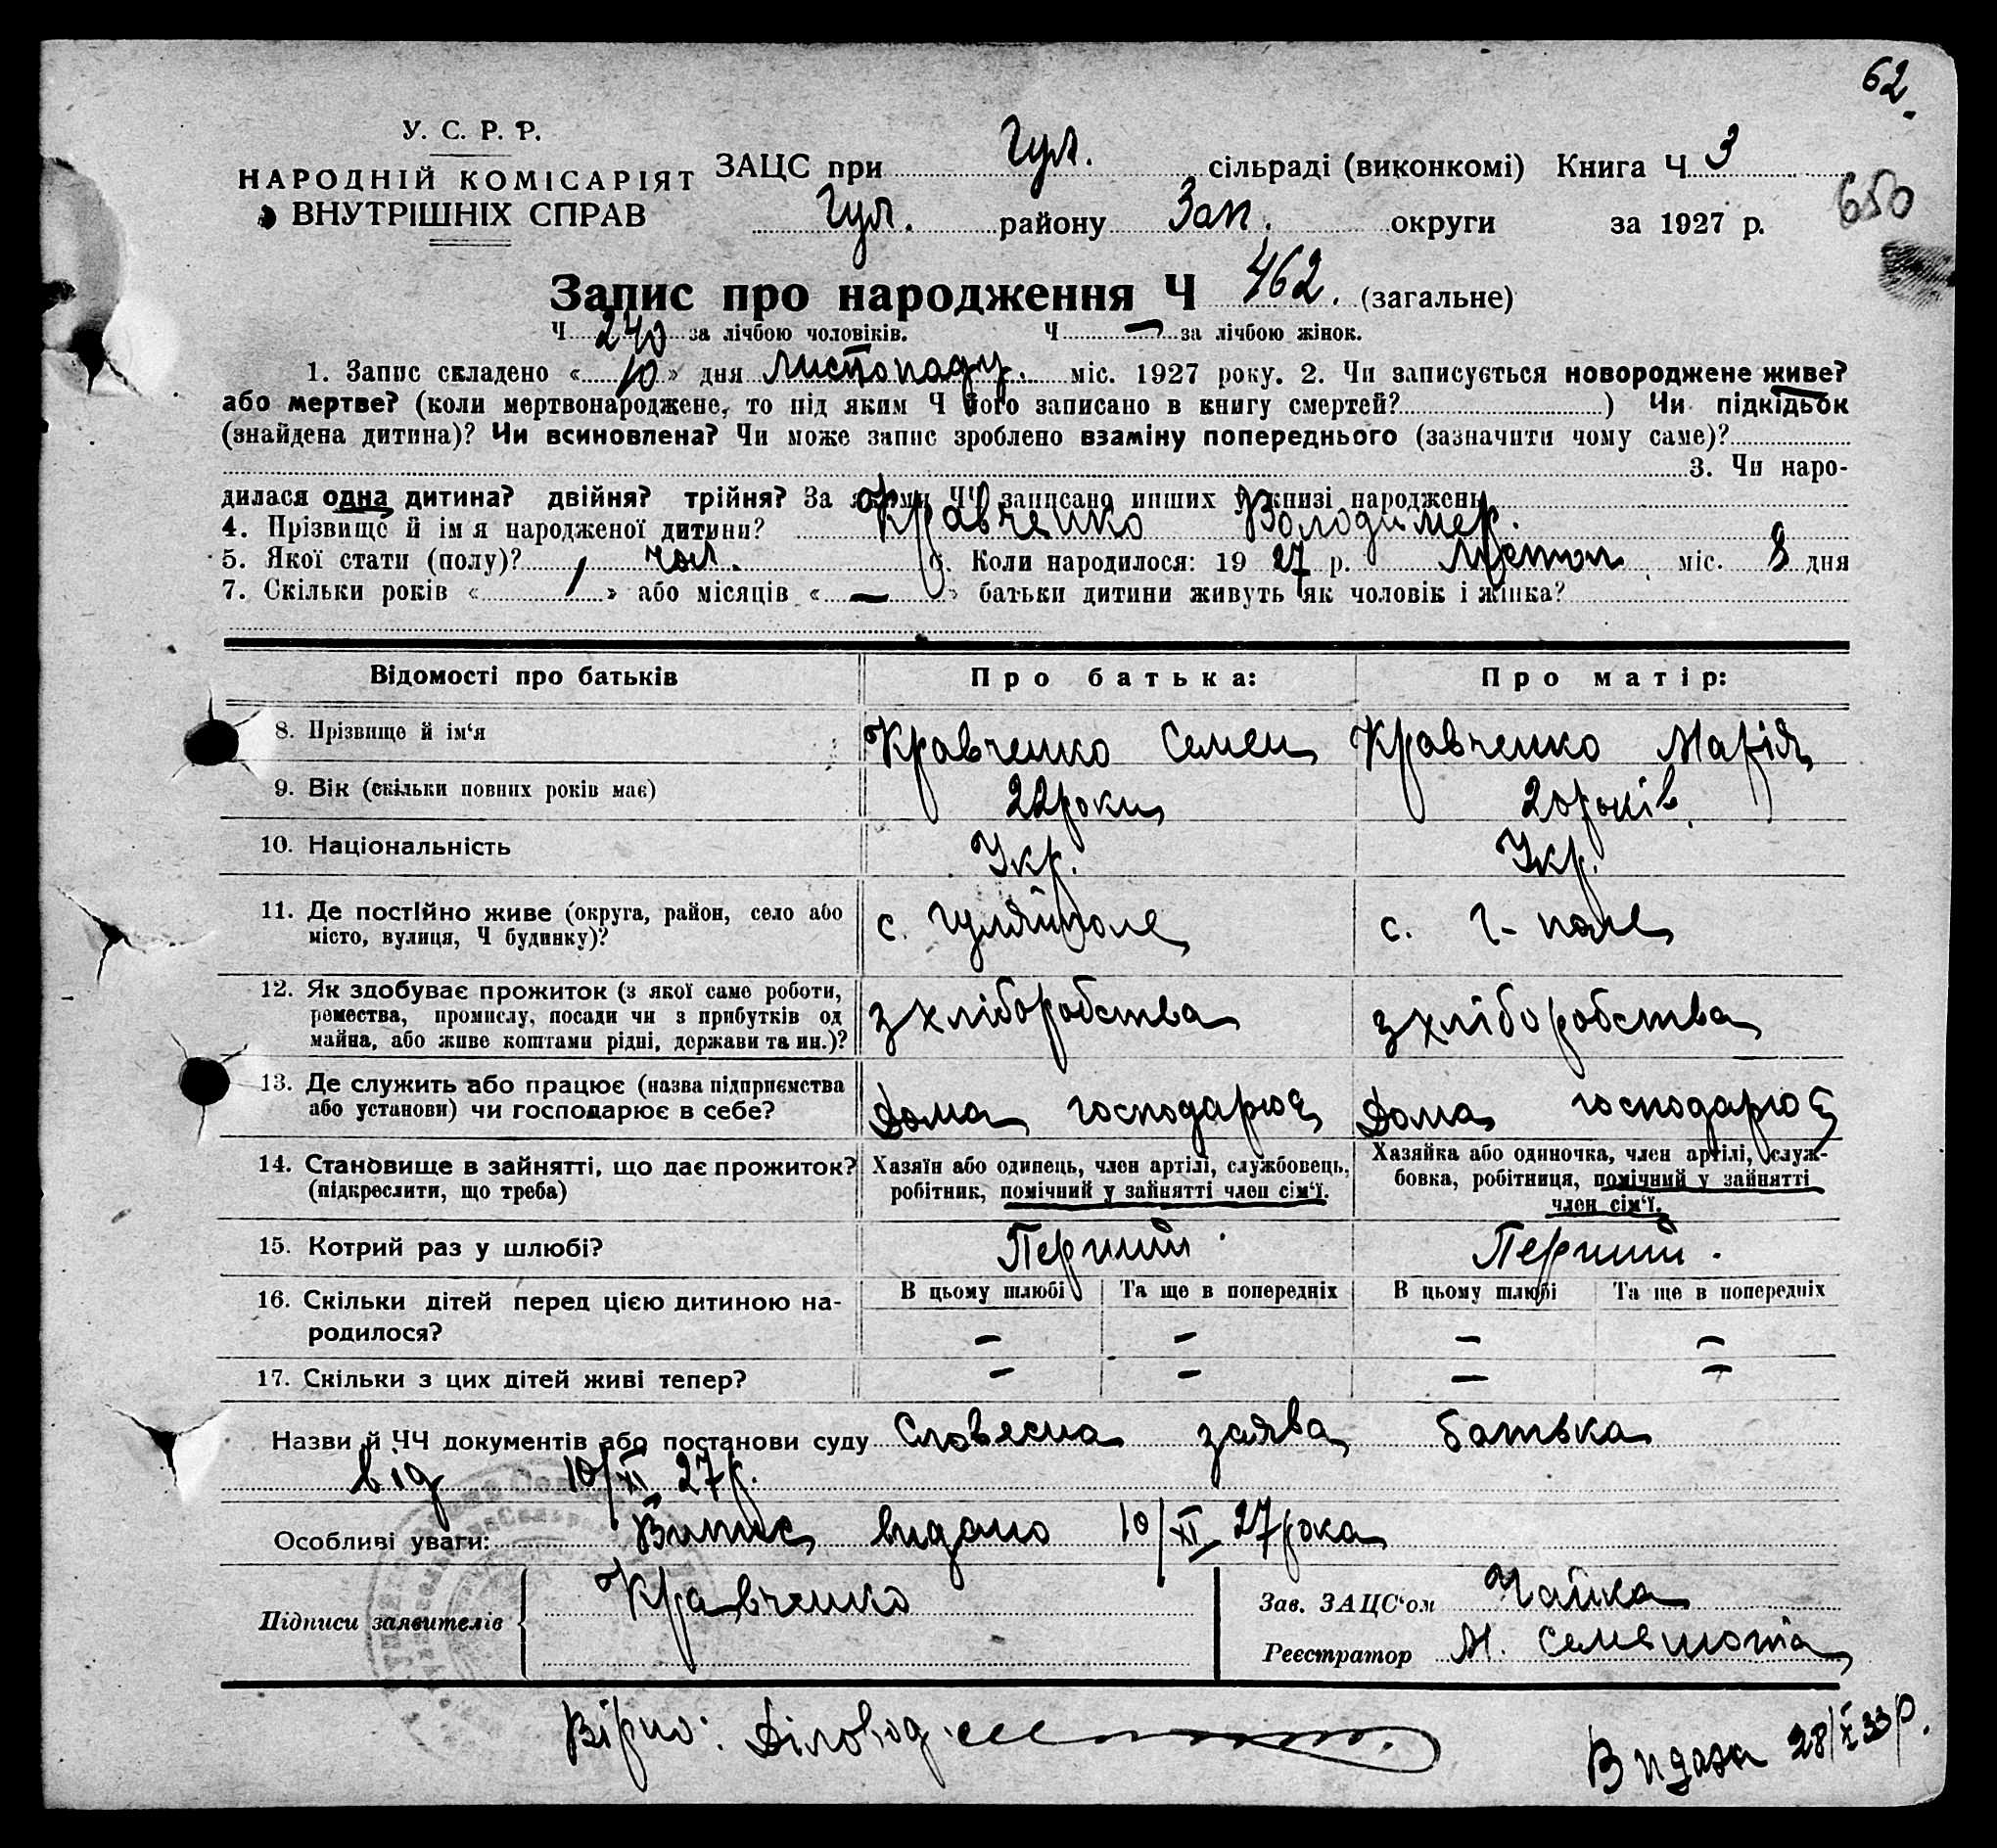 62.
У. С. Р. Р.
НАРОДНІЙ КОМІСАРІЯТ
ВНУТРІШНІХ СПРАВ
ЗАЦС при Гул. сільраді (виконкомі) Книга Ч 3
Гул. району Зап. округи за 1927 р.
650
Запис про народження Ч 462. (загальне)
Ч 240 за лічбою чоловіків. Ч — за лічбою жінок.
1. Запис складено «10» дня листопаду. міс. 1927 року. 2. Чи записується новороджене живе?
або мертве? (коли мертвонароджене, то під яким Ч його записано в книгу смертей?) Чи підкідьок
(знайдена дитина)? Чи всиновлена? Чи може запис зроблено взаміну попереднього (зазначити чому саме)?
3. Чи наро-
дилася одна дитина? двійня? трійня? За якими ЧЧ записано инших у книзі народжень
4. Прізвище й ім'я народженої дитини? Кравченко Володимер.
5. Якої стати (полу)? чол. 6. Коли народилося: 1927 р. листоп міс. 8 дня
7. Скільки років «1» або місяців «—» батьки дитини живуть як чоловік і жінка?
Відомості про батьків Про батька: Про матір:
8. Прізвище й ім'я Кравченко Семен Кравченко Марія
9. Вік (скільки повних років має) 22 роки 20 років
10. Національність Укр. Укр.
11. Де постійно живе (округа, район, село або
місто, вулиця, Ч будинку)? с. Гуляйполе с. Г-поле
12. Як здобуває прожиток (з якої саме роботи,
ремества, промислу, посади чи з прибутків од
майна, або живе коштами рідні, держави та ин.)? з хліборобства з хліборобства
13. Де служить або працює (назва підприємства
або установи) чи господарює в себе? Дома господарює Дома господарює
14. Становище в зайнятті, що дає прожиток?
(підкреслити, що треба)
Хазяїн або одинець, член артілі, службовець,
робітник, помічний у зайнятті член сім'ї.
Хазяйка або одиночка, член артілі, служ-
бовка, робітниця, помічний у зайнятті
член сім'ї.
15. Котрий раз у шлюбі? Перший. Перший.
16. Скільки дітей перед цією дитиною на-
родилося?
В цьому шлюбі Та ще в попередніх В цьому шлюбі Та ще в попередніх
— — — —
17. Скільки з цих дітей живі тепер? — — — —
Назви й ЧЧ документів або постанови суду Словесна заява батька
від 10/XI 27 р.
Особливі уваги: Випис видано 10/XI 27 рока
Підписи заявителів Кравченко
Зав. ЗАЦС'ом Чайка
Реєстратор М.
Вірно: Діловод
Видана 28/X 33 р.